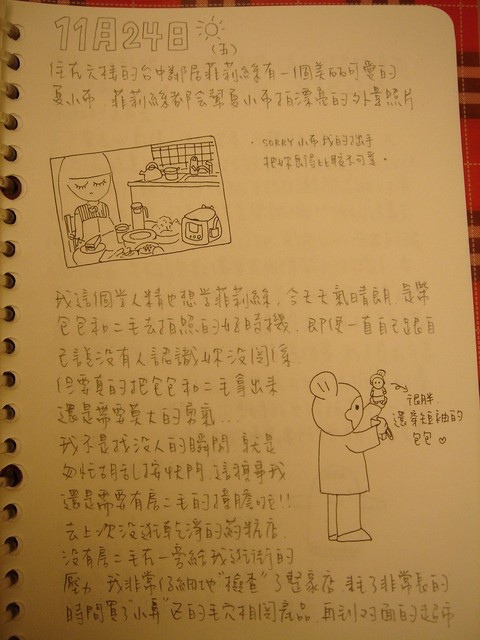 11月24日
(五)
住在六樓的台中鄰居菲莉絲有一個美的可愛的
夏小布 菲莉絲都會幫夏小布拍漂亮的外景照片
SORRY 小布 我的拙手
把你
我這個學人精也想學菲莉絲.今天天氣晴朗.是帶
包包和二毛去拍照的好時機.即使一直自己跟自
己說沒有人認識妳沒關係
但要真的把包包和二毛拿出來
還是需要莫大的勇氣...
我不是找沒人的瞬間 就是
匆忙胡亂按快門.這種事我
還是需要有房二毛的壯膽啦!!
去上次沒逛乾淨的藥粧店.
沒有房二毛在一旁給我逛街的
壓力 我非常仔細地"檢查"了整家店 花了非常長的
時間買了"小鼻"的毛穴相關產品.再到對面的超市
很胖
還穿短袖的
包包♡